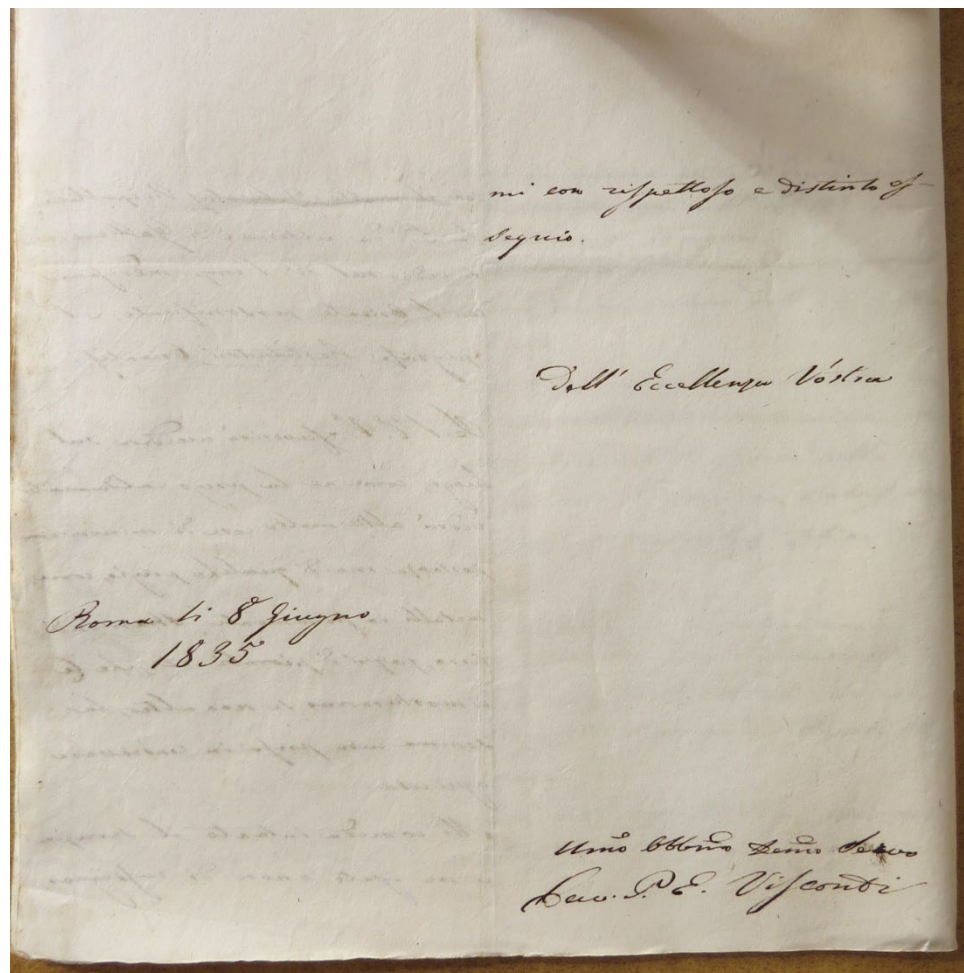 mi con rispettoso e distinto os-
sequio.
Dell' Eccellenza Vostra
Roma li 8 Giugno
1835
Umo Obbmo Demo Servo
Cav. P. E. Visconti